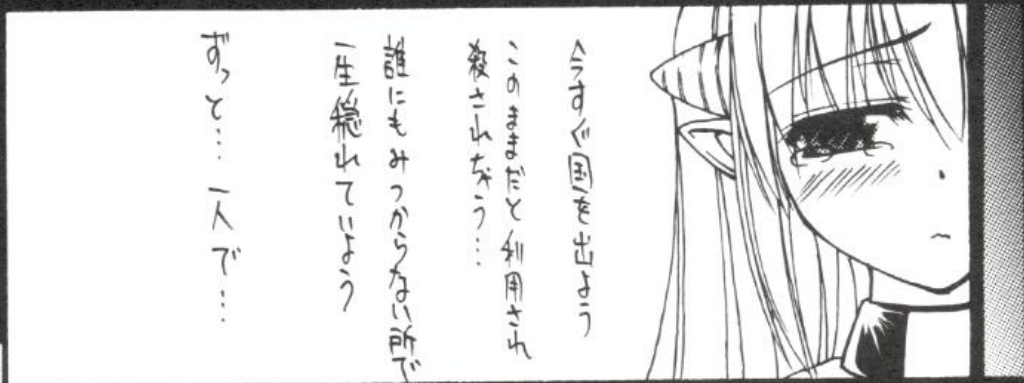 今すぐ国を出よう
このままだと利用され
殺されちゃう…
誰にもみつからない所で
一生隠れていよう
ずっと…一人で…